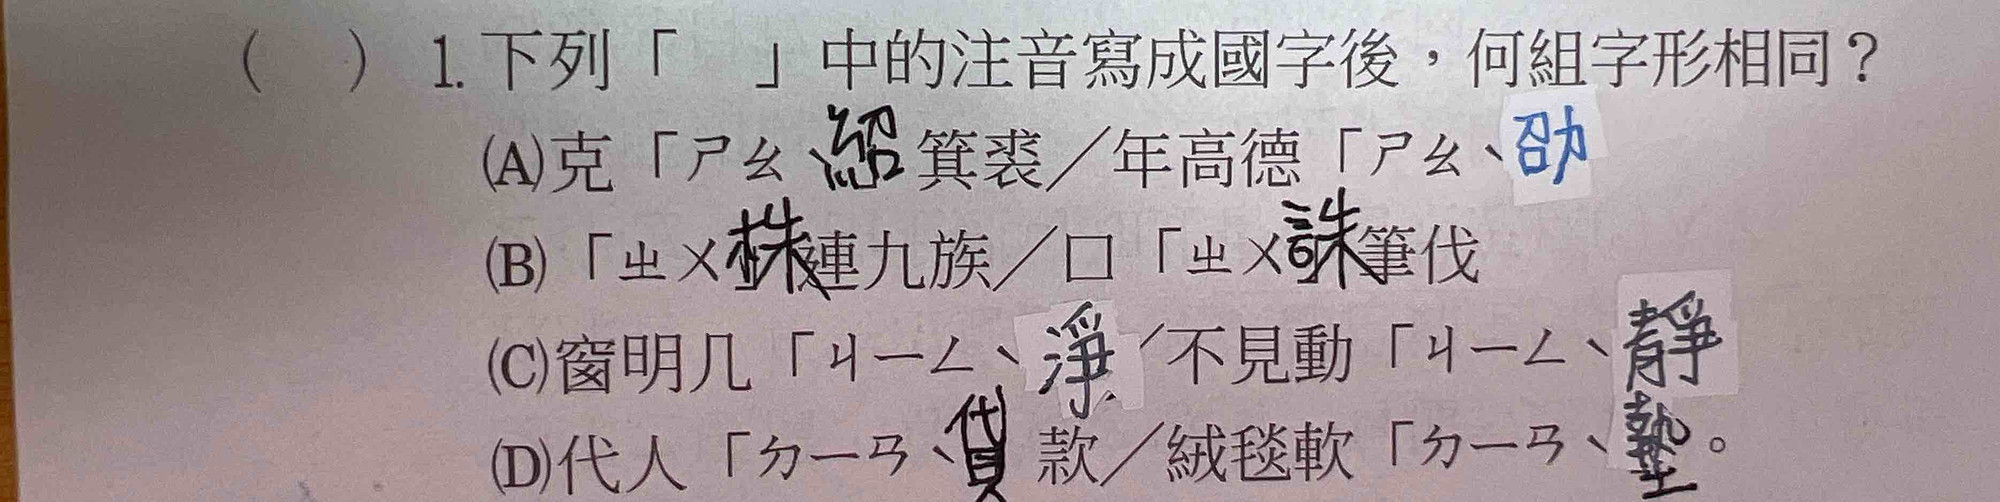 (　) 1.下列「　」中的注音寫成國字後，何組字形相同？
(A)克「ㄕㄠˋ紹箕裘／年高德「ㄕㄠˋ劭
(B)「ㄓㄨ株連九族／口「ㄓㄨ誅筆伐
(C)窗明几「ㄐㄧㄥˋ淨／不見動「ㄐㄧㄥˋ靜
(D)代人「ㄉㄧㄢˋ貸款／絨毯軟「ㄉㄧㄢˋ墊。